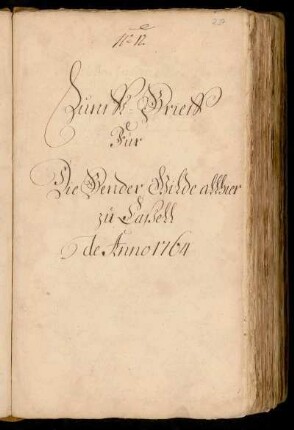 No. 12.
Zunft-Brieff
Für
Die Bender Gilde allhier
zu Caßell
de Anno 1764